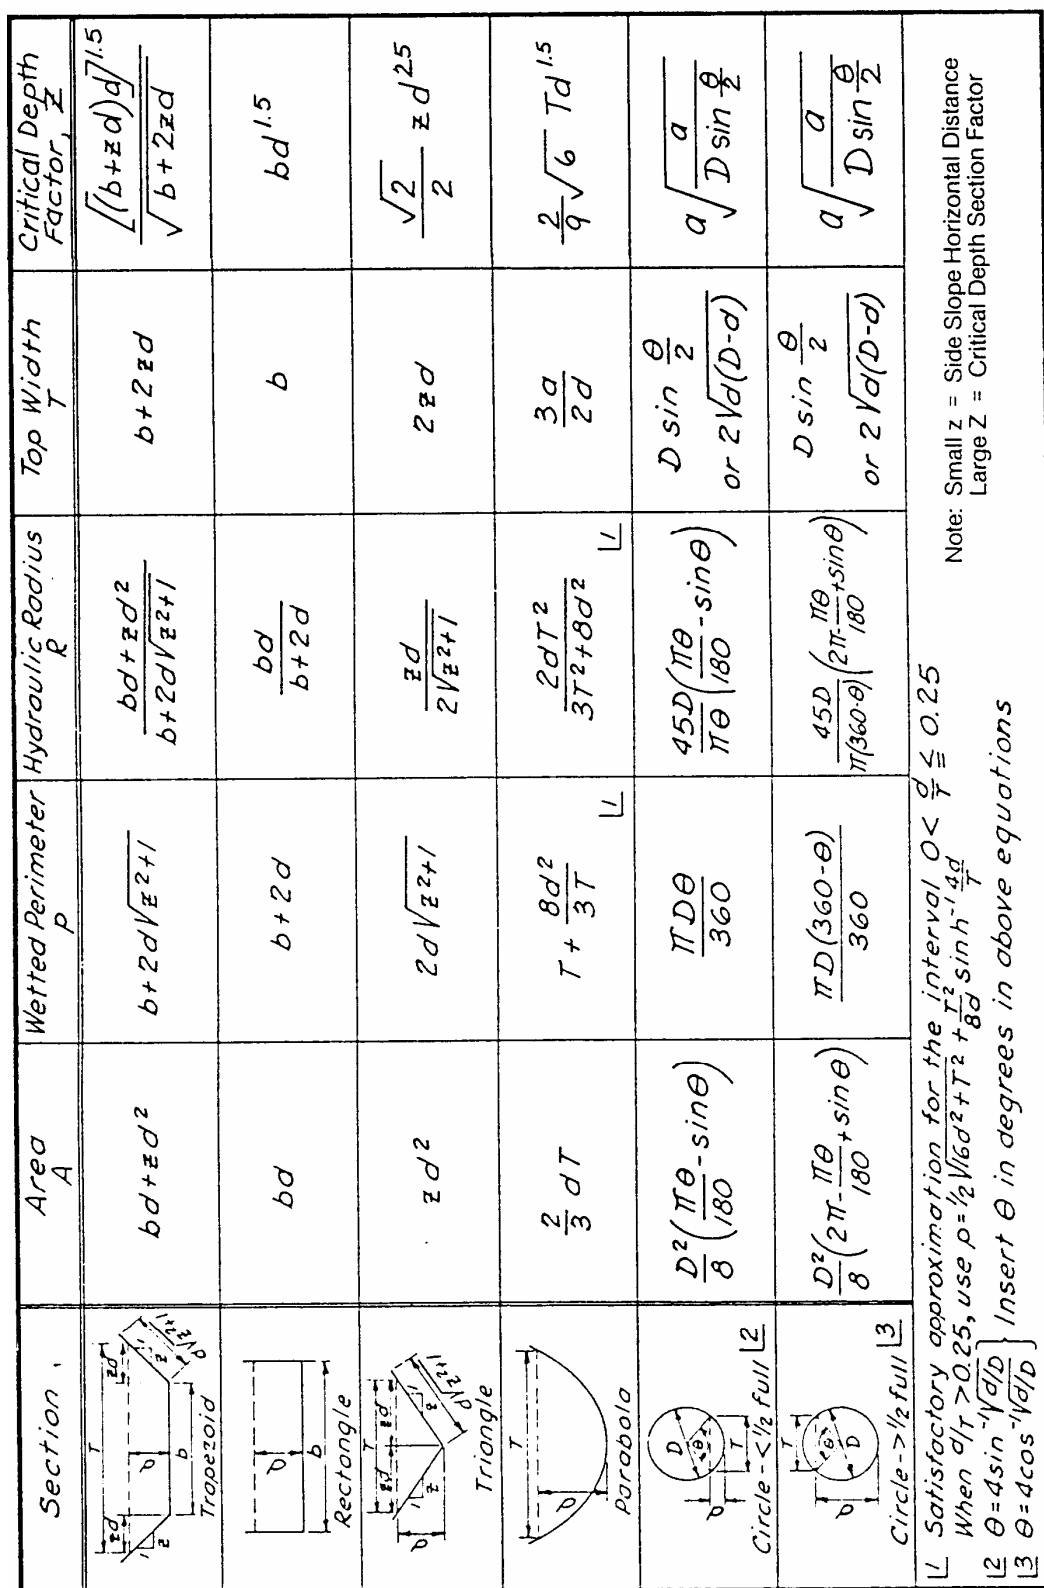 Section
Area
A
Wetted Perimeter
P
Hydraulic Radius
R
Top Width
T
Critical Depth
Factor, Z
T
zd
zd
d
1
z
1
z
d√z²+1
b
Trapezoid
bd+zd²
b+2d√z²+1
bd+zd² / b+2d√z²+1
b+2zd
[(b+zd)d]^1.5 / √b+2zd
d
b
Rectangle
bd
b+2d
bd / b+2d
b
bd^1.5
T
zd
zd
d
1
z
1
z
d√z²+1
Triangle
zd²
2d√z²+1
zd / 2√z²+1
2zd
√2/2 zd^2.5
T
d
Parabola
2/3 dT
T + 8d²/3T 1
2dT² / 3T²+8d² 1
3a / 2d
2/9 √6 Td^1.5
D
θ
T
d
Circle-<1/2 full 2
D²/8 (πθ/180 - sinθ)
πDθ / 360
45D/πθ (πθ/180 - sinθ)
D sin θ/2
or 2√d(D-d)
a√a / D sin θ/2
T
θ
D
d
Circle->1/2 full 3
D²/8 (2π - πθ/180 + sinθ)
πD(360-θ) / 360
45D/π(360-θ) (2π - πθ/180 + sinθ)
D sin θ/2
or 2√d(D-d)
a√a / D sin θ/2
1 Satisfactory approximation for the interval 0< d/T ≦ 0.25
When d/T >0.25, use p=1/2√16d²+T² + T²/8d sinh⁻¹ 4d/T
2 θ=4sin⁻¹√d/D } Insert θ in degrees in above equations
3 θ=4cos⁻¹√d/D
Note: Small z = Side Slope Horizontal Distance
Large Z = Critical Depth Section Factor